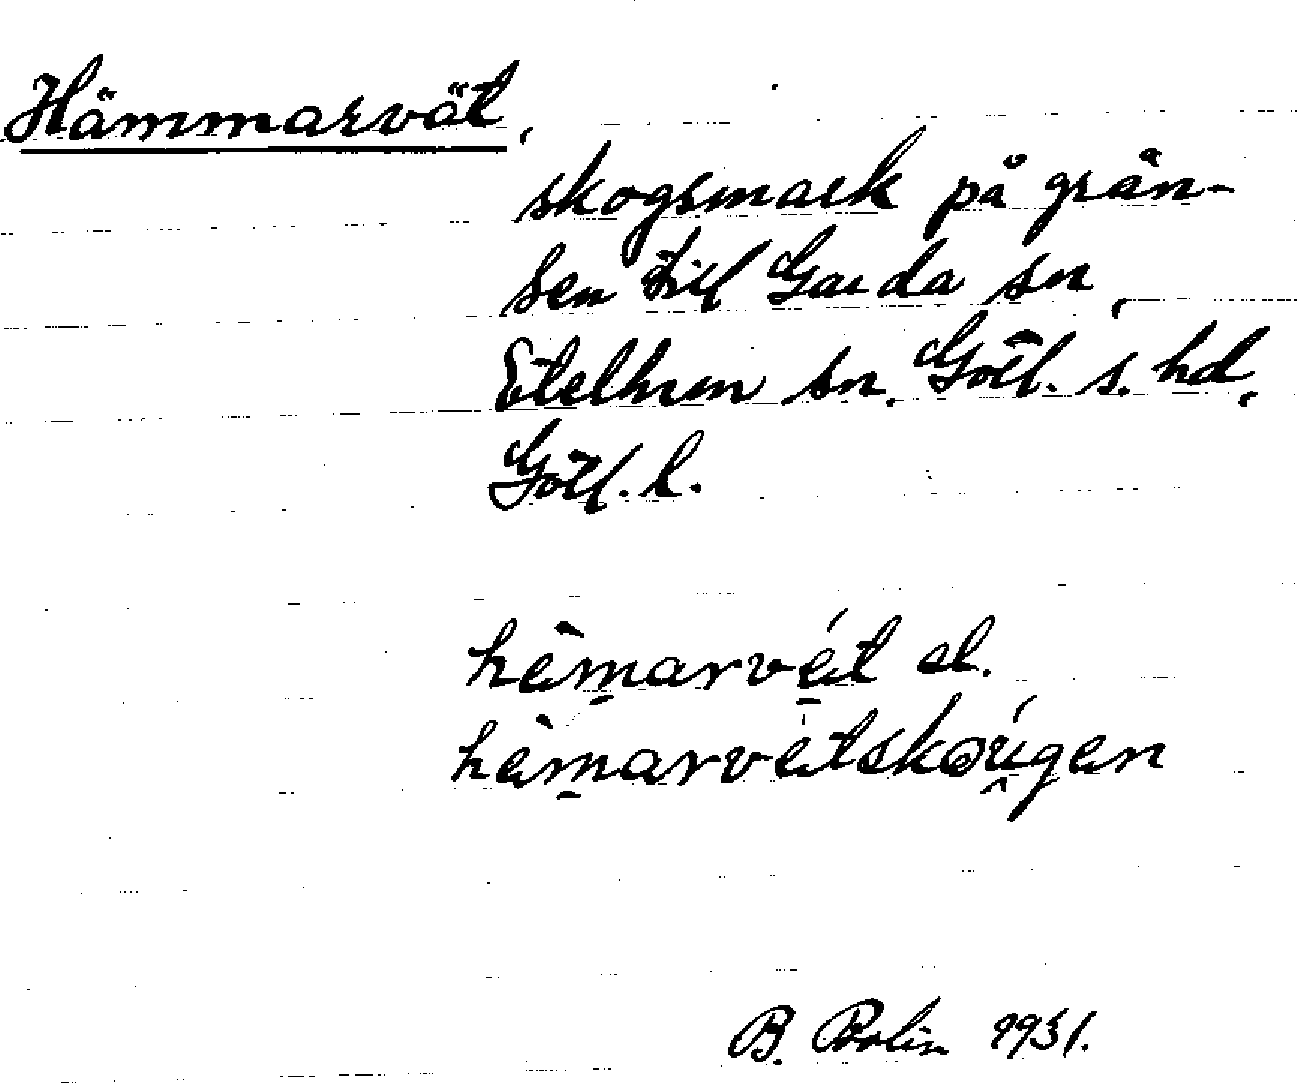 Hämmarvät,
skogsmark på grän-
sen till Garda sn,
Etelhem sn. Gotl. s. hd,
Gotl. l.
hèm̠arvé̠t el.
hèm̠arvé̠tskoú̯gen
B. Bolin 1931.